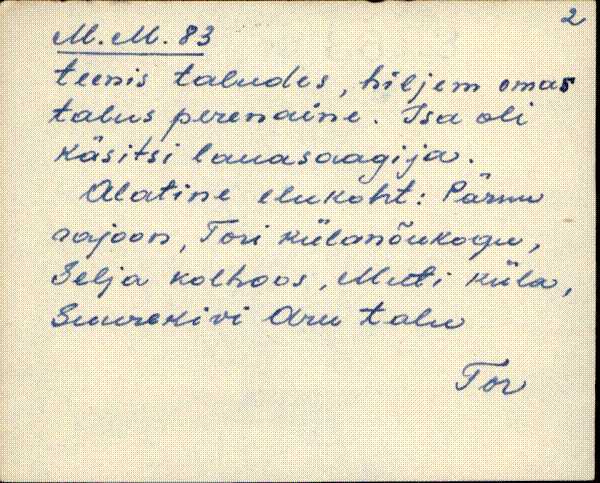 2
M. M. 83
teenis taludes, hiljem omas
talus perenaine. Isa oli
käsitsi lauasaagija.
Alatine elukoht: Pärnu
rajoon, Tori külanõukogu,
Selja kolhoos, Muti küla,
Suurekivi Aru talu
Tor